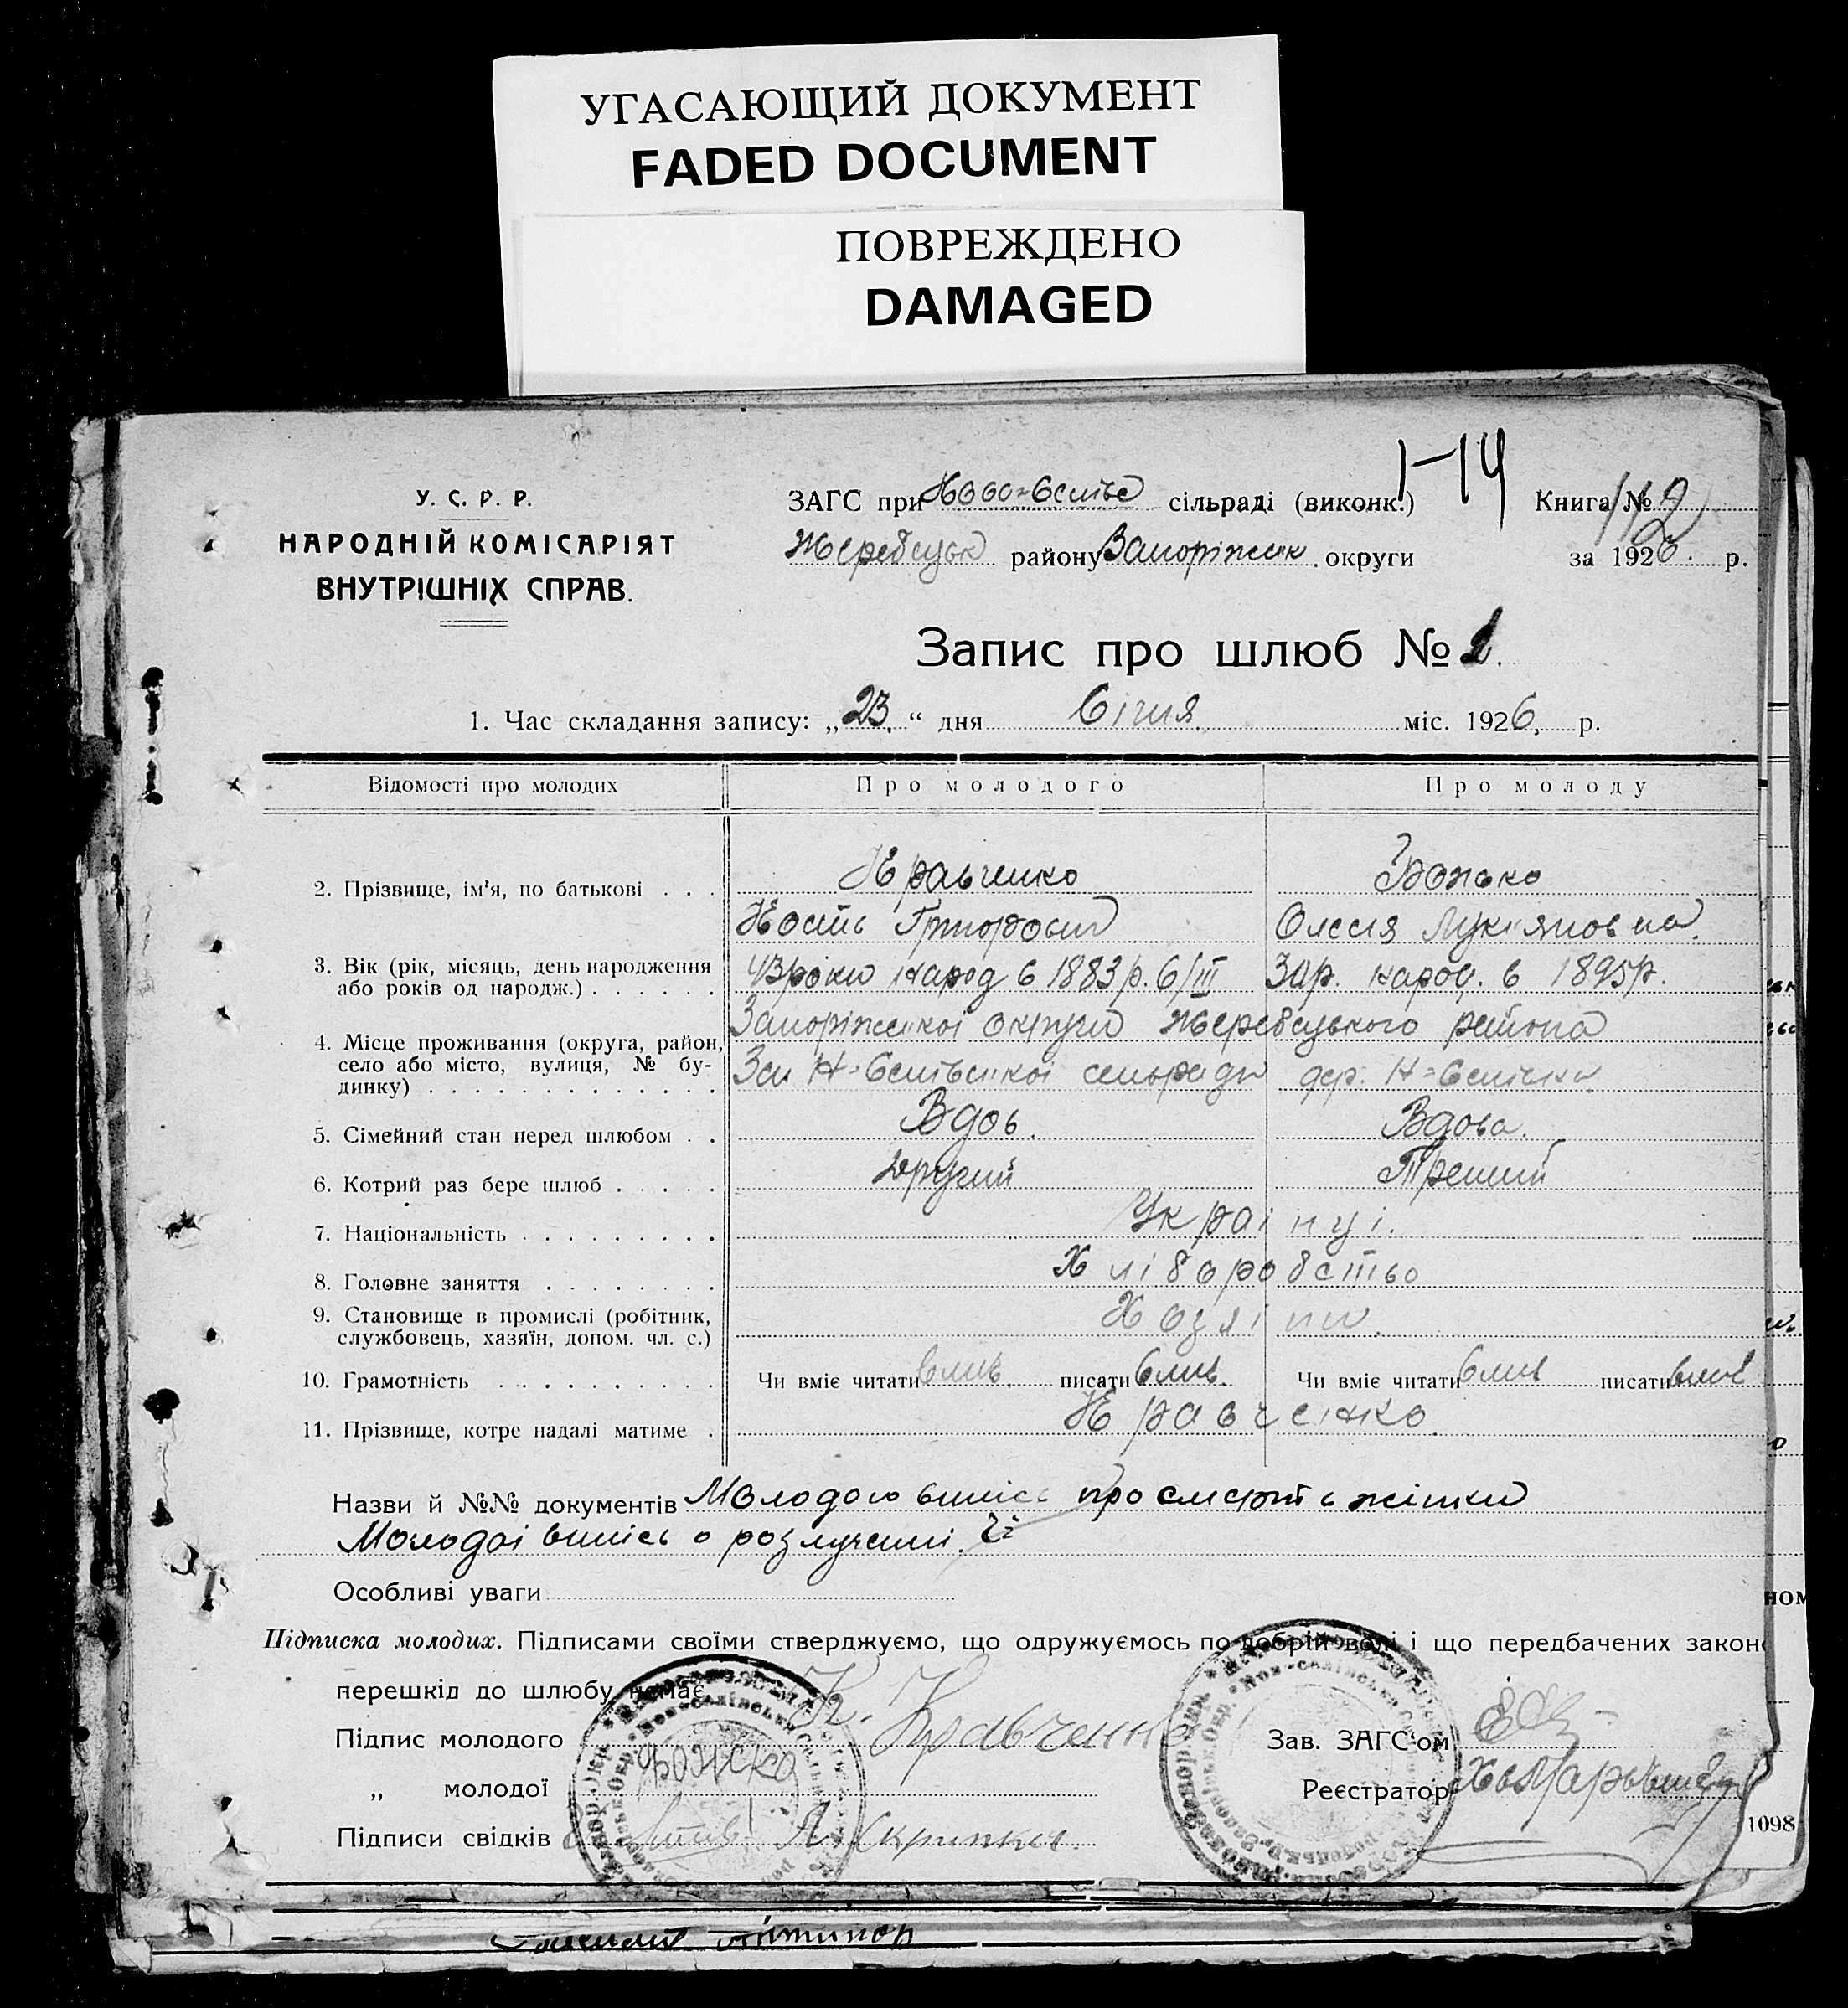 УГАСАЮЩИЙ ДОКУМЕНТ
FADED DOCUMENT
ПОВРЕЖДЕНО
DAMAGED
1-14
У. С. Р. Р.
НАРОДНІЙ КОМІСАРІЯТ
ВНУТРІШНІХ СПРАВ.
ЗАГС при сільраді (виконк.)
Жеребецьк району Запоріжськ. округи
Книга №
за 1926. р.
Запис про шлюб №
1. Час складання запису: „23.“ дня Січня міс. 1926, р.
Відомості про молодих Про молодого Про молоду
2. Прізвище, ім'я, по батькові . . . Кравченко
Кость Григорович Олєся Лук'яновна.
3. Вік (рік, місяць, день народження
або років од народж.) . . . . . . 43 роки народ в 1883 р. 6/III народ. в 1895 р.
4. Місце проживання (округа, район,
село або місто, вулиця, № бу-
динку) . . . . . . . . . . . . . Запоріжської округи Жеребецького района
5. Сімейний стан перед шлюбом . . Вдов. Вдова.
6. Котрий раз бере шлюб . . . . . Другий Третий
7. Національність . . . . . . . . . Українці.
8. Головне заняття . . . . . . . . Хліборобство
9. Становище в промислі (робітник,
службовець, хазяїн, допом. чл. с.) Хозяіни.
10. Грамотність . . . . . . . . . . Чи вміє читати писати Чи вміє читати писати
11. Прізвище, котре надалі матиме . Кравченко.
Назви й №№ документів Молодого випісь про смерть жінки
Молодої випісь о розлученні.
Особливі уваги
Підписка молодих. Підписами своїми стверджуємо, що одружуємось по добрій волі і що передбачених законо
перешкід до шлюбу немає
Підпис молодого К. Кравченко Зав. ЗАГС'ом
„ молодої Реєстратор
Підписи свідків
1098